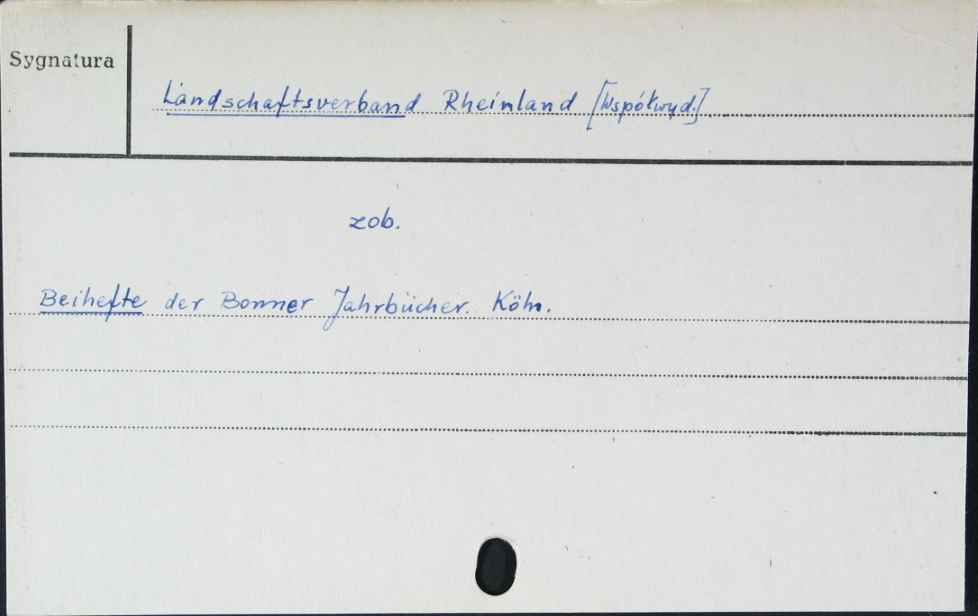 Sygnatura
Landschaftsverband Rheinland [Współwyd.]
zob.
Beihefte der Bonner Jahrbücher. Köln.